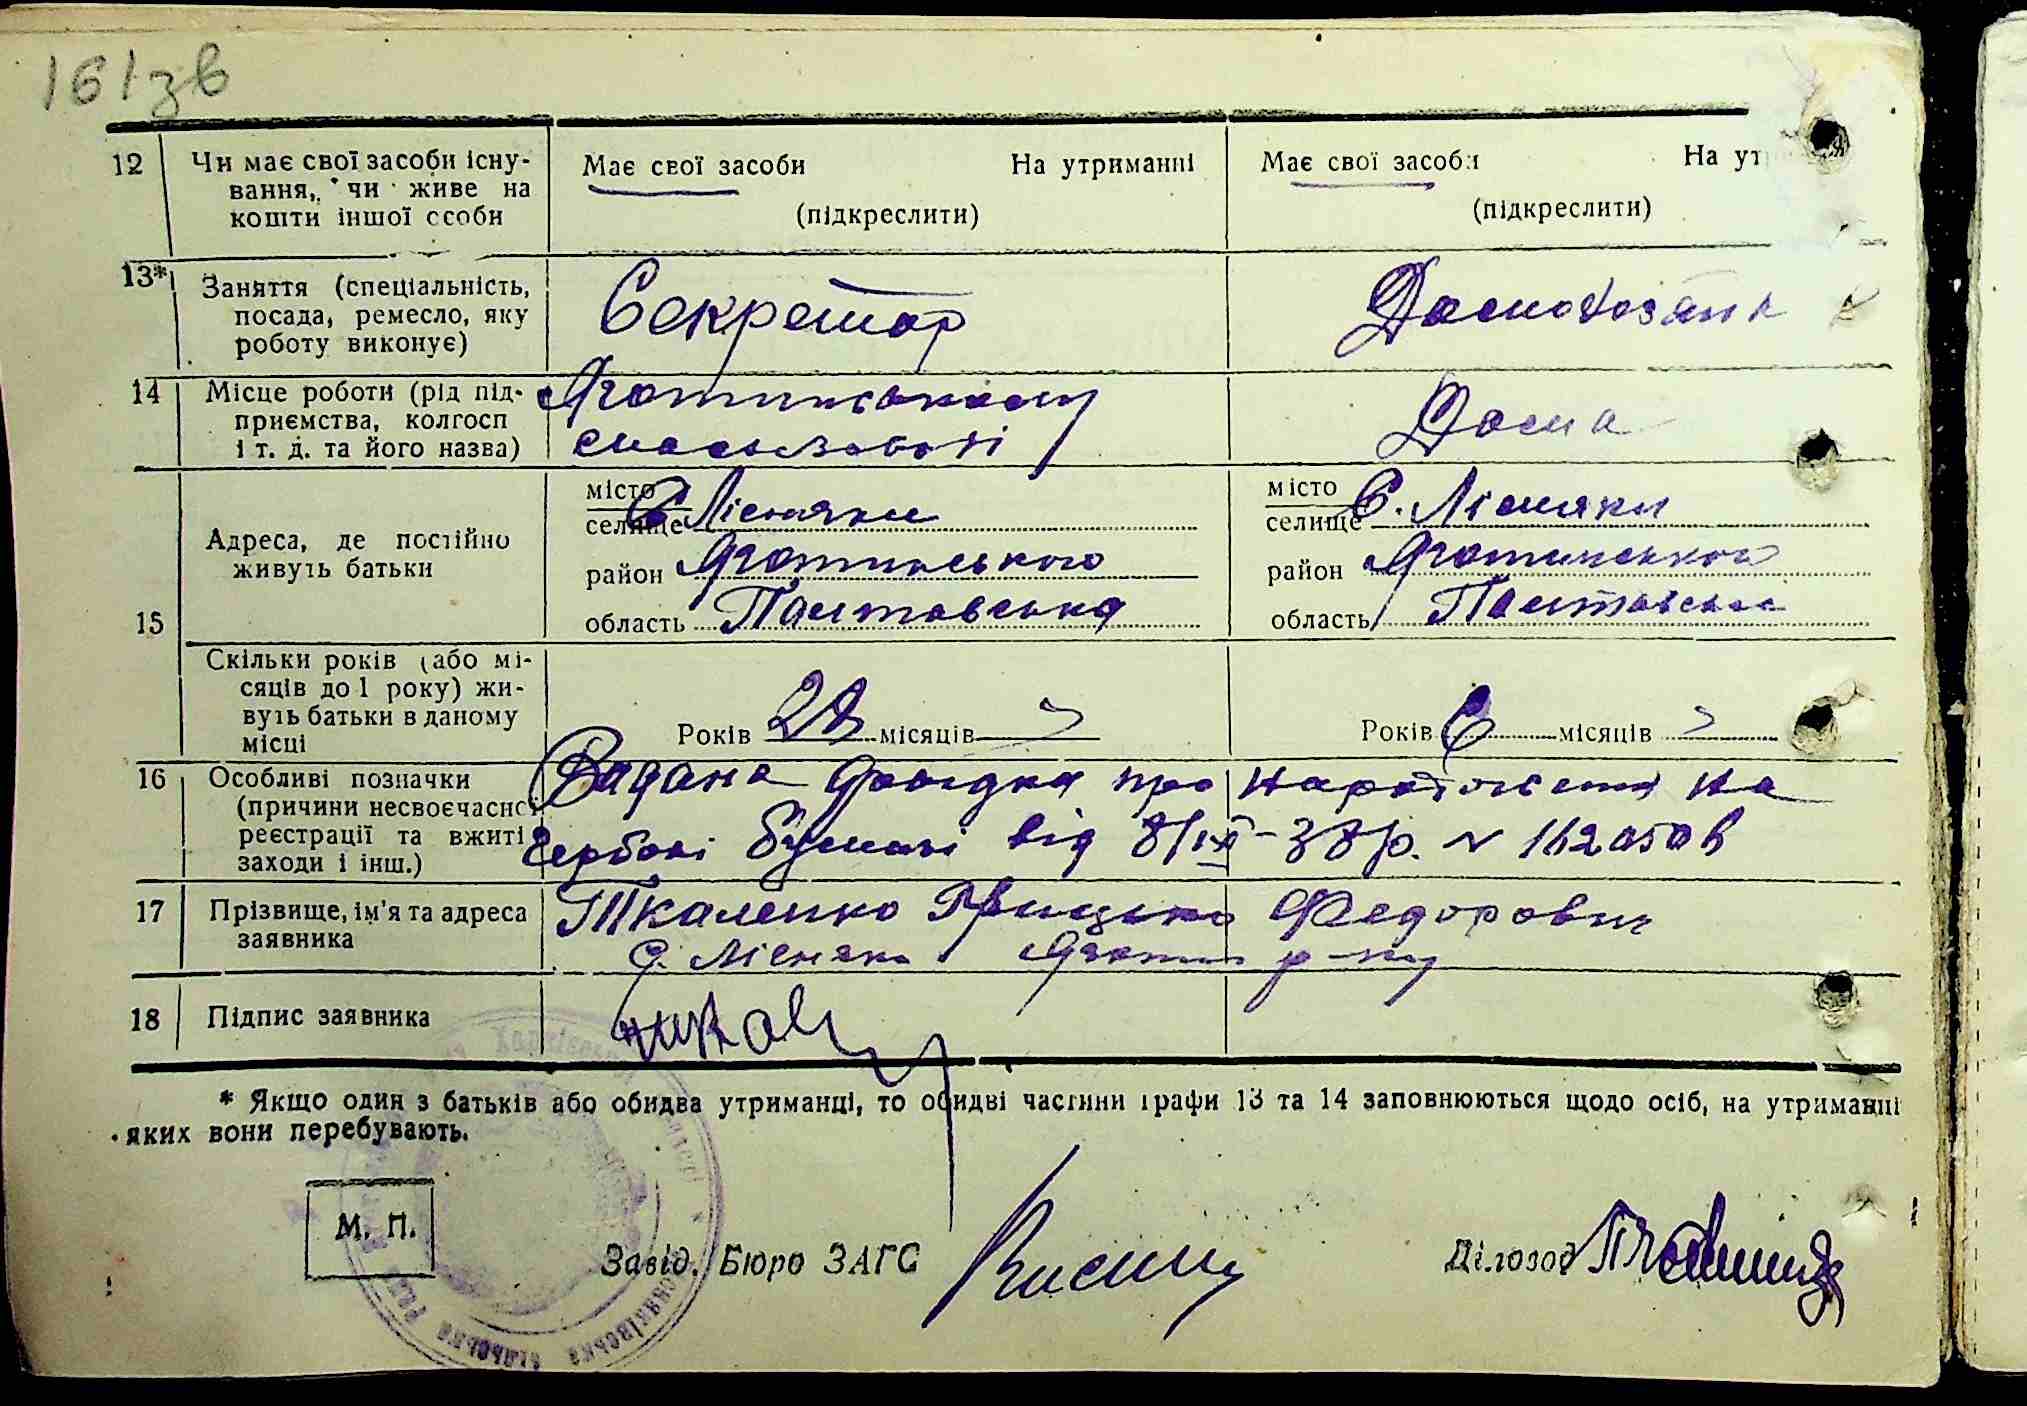 161зв
12 Чи має свої засоби існу-
вання, чи живе на
кошти іншої особи
Має свої засоби На утриманні
(підкреслити)
Має свої засоби На ут
(підкреслити)
13* Заняття (спеціальність,
посада, ремесло, яку
роботу виконує)
Секретар
Домохозяйка
14 Місце роботи (рід під-
приємства, колгосп
і т. д. та його назва)
Яготинському
Дома
15 Адреса, де постійно
живуть батьки
місто
селище С. Лісняки
район Яготинського
область Полтавська
місто
селище С. Лісняки
район Яготинського
область Полтавська
Скільки років (або мі-
сяців до 1 року) жи-
вуть батьки в даному
місці
Років 28 місяців
Років 6 місяців
16 Особливі позначки
(причини несвоєчасної
реєстрації та вжиті
заходи і інш.)
Видана довідка про народження на
гербові бумазі від 8/ІХ-38р. № 162050 в
17 Прізвище, ім'я та адреса
заявника
Ткаленко Грицько Федорович
С. Лісняки Яготин р-ну
18 Підпис заявника
* Якщо один з батьків або обидва утриманці, то обидві частини графи 13 та 14 заповнюються щодо осіб, на утриманні
яких вони перебувають.
М. П.
Завід. Бюро ЗАГС
Діловод